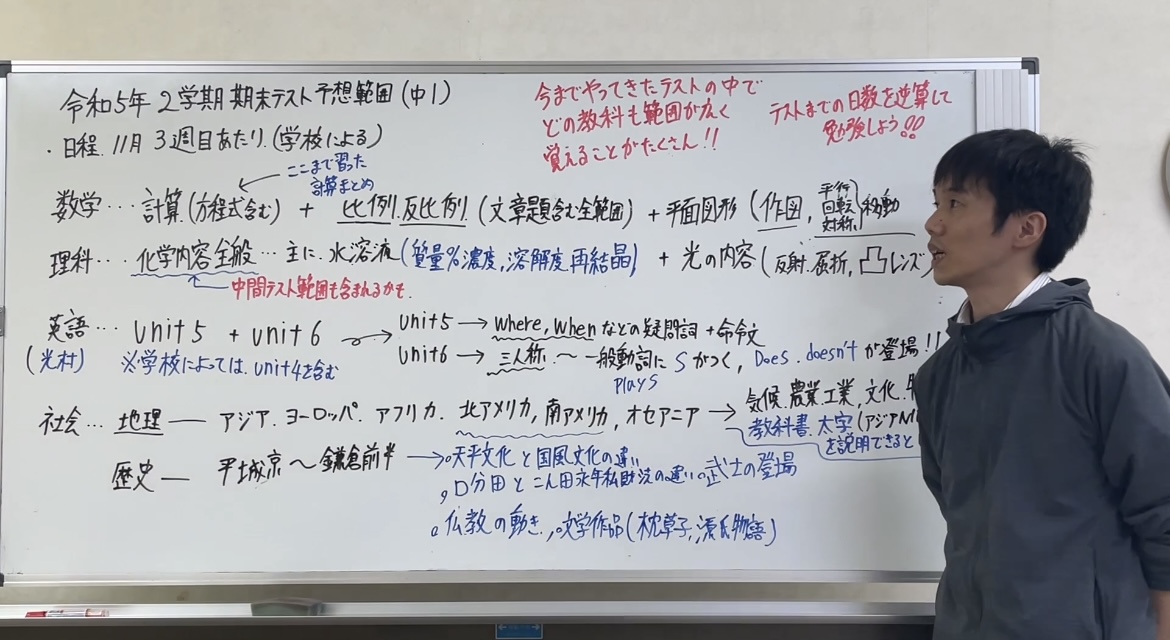 令和5年 2学期 期末テスト 予想範囲 (中1)
・日程. 11月 3週目あたり.(学校による)
今までやってきたテストの中で
どの教科も範囲が広く
覚えることがたくさん!!
テストまでの日数を逆算して
勉強しよう!!
ここまで習った
計算まとめ
数学・・・計算.(方程式含む) + 比例.反比例.(文章題含む全範囲) + 平面図形 (作図, 平行 回転 対称.)移動
理科・・・化学内容全般・・・主に.水溶液(質量%濃度,溶解度,再結晶) + 光の内容(反射.屈折,凸レンズ)
中間テスト範囲も含まれるかも.
英語・・・ unit5 + unit6
(光村) ※学校によっては.unit4を含む
unit5→where,whenなどの疑問詞+命令文
unit6→三人称〜一般動詞にSがつく,Does.doesn'tが登場!!
plays
社会・・・地理 ― アジア.ヨーロッパ.アフリカ.北アメリカ,南アメリカ,オセアニア→気候.農業.工業,文化.
教科書.太字(アジアN
を説明できると
歴史 ― 平城京〜鎌倉前半→。天平文化と国風文化の違い
。口分田とこん田永年私財法の違い。武士の登場
。仏教の動き.。文学作品(枕草子,源氏物語)